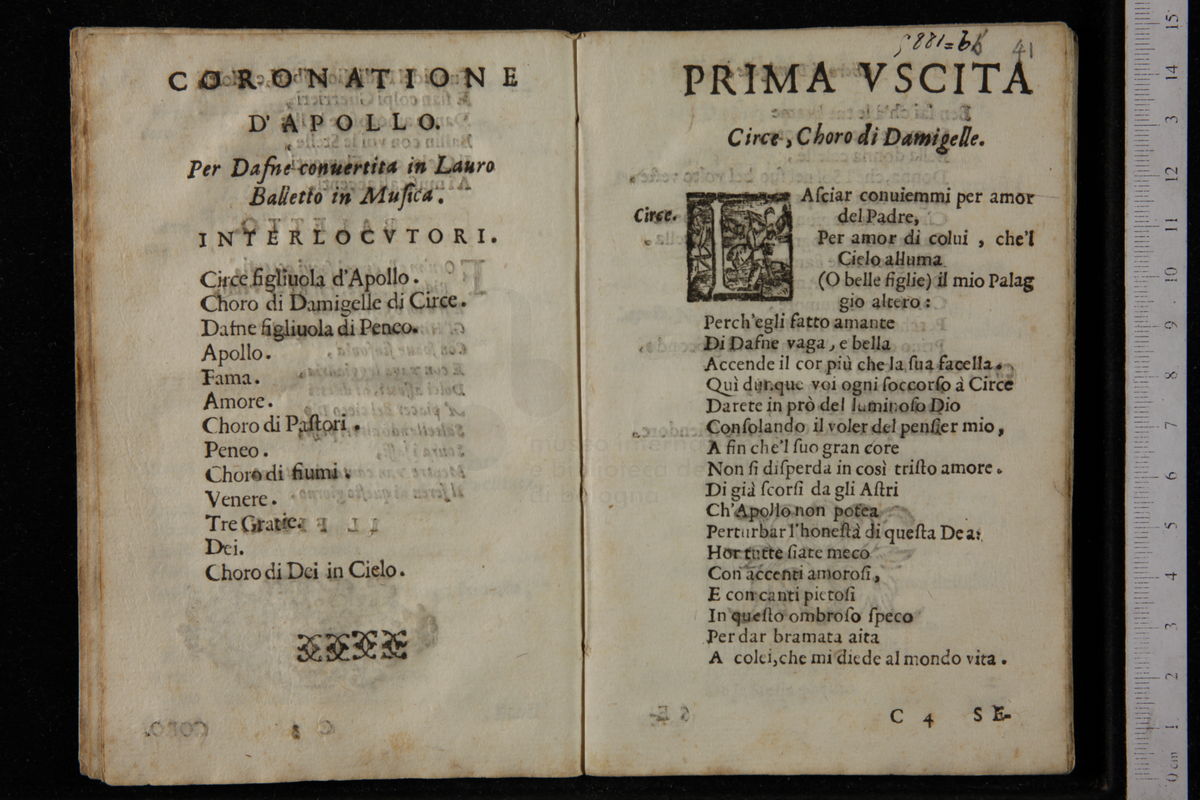 CORONATIONE
D'APOLLO.
Per Dafne conuertita in Lauro
Balletto in Muſica.
INTERLOCVTORI.
Circe figliuola d'Apollo.
Choro di Damigelle di Circe.
Dafne figliuola di Peneo.
Apollo.
Fama.
Amore.
Choro di Paſtori.
Peneo.
Choro di fiumi.
Venere.
Tre Gratie.
Dei.
Choro di Dei in Cielo.
41
PRIMA VSCITA
Circe, Choro di Damigelle.
Circe.
LAſciar conuiemmi per amor
del Padre,
Per amor di colui, che'l
Cielo alluma
(O belle figlie) il mio Palag
gio altero:
Perch'egli fatto amante
Di Dafne vaga, e bella
Accende il cor più che la ſua facella.
Quì dunque voi ogni ſoccorſo à Circe
Darete in prò del luminoſo Dio
Conſolando il voler del penſier mio,
A fin che'l ſuo gran core
Non ſi diſperda in così triſto amore.
Di già ſcorſi da gli Aſtri
Ch'Apollo non potea
Perturbar l'honeſtà di queſta Dea:
Hor tutte ſiate meco
Con accenti amoroſi,
E con canti pietoſi
In queſto ombroſo ſpeco
Per dar bramata aita
A colei, che mi diede al mondo vita.
C 4 SE-